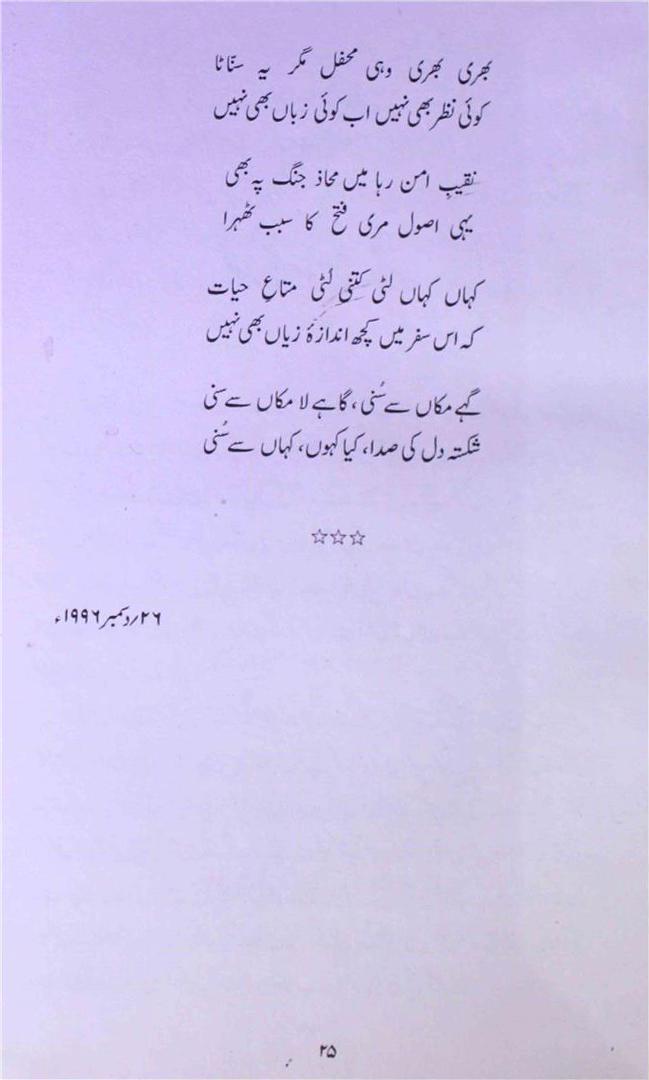 بھری بھری وہی محفل مگر یہ سنّاٹا
کوئی نظر بھی نہیں اب کوئی زباں بھی نہیں
نقیبِ امن رہا میں محاذ جنگ پہ بھی
یہی اصول مری فتح کا سبب ٹھہرا
کہاں کہاں لٹی کِتنی لُٹی متاعِ حیات
کہ اس سفر میں کچھ اندازۂ زیاں بھی نہیں
گہے مکاں سے سُنی، گاہے لا مکاں سے سنی
شکستہ دل کی صدا، کیا کہوں، کہاں سے سُنی
☆☆☆
۲۶؍دسمبر ۱۹۹۶ء
۲۵